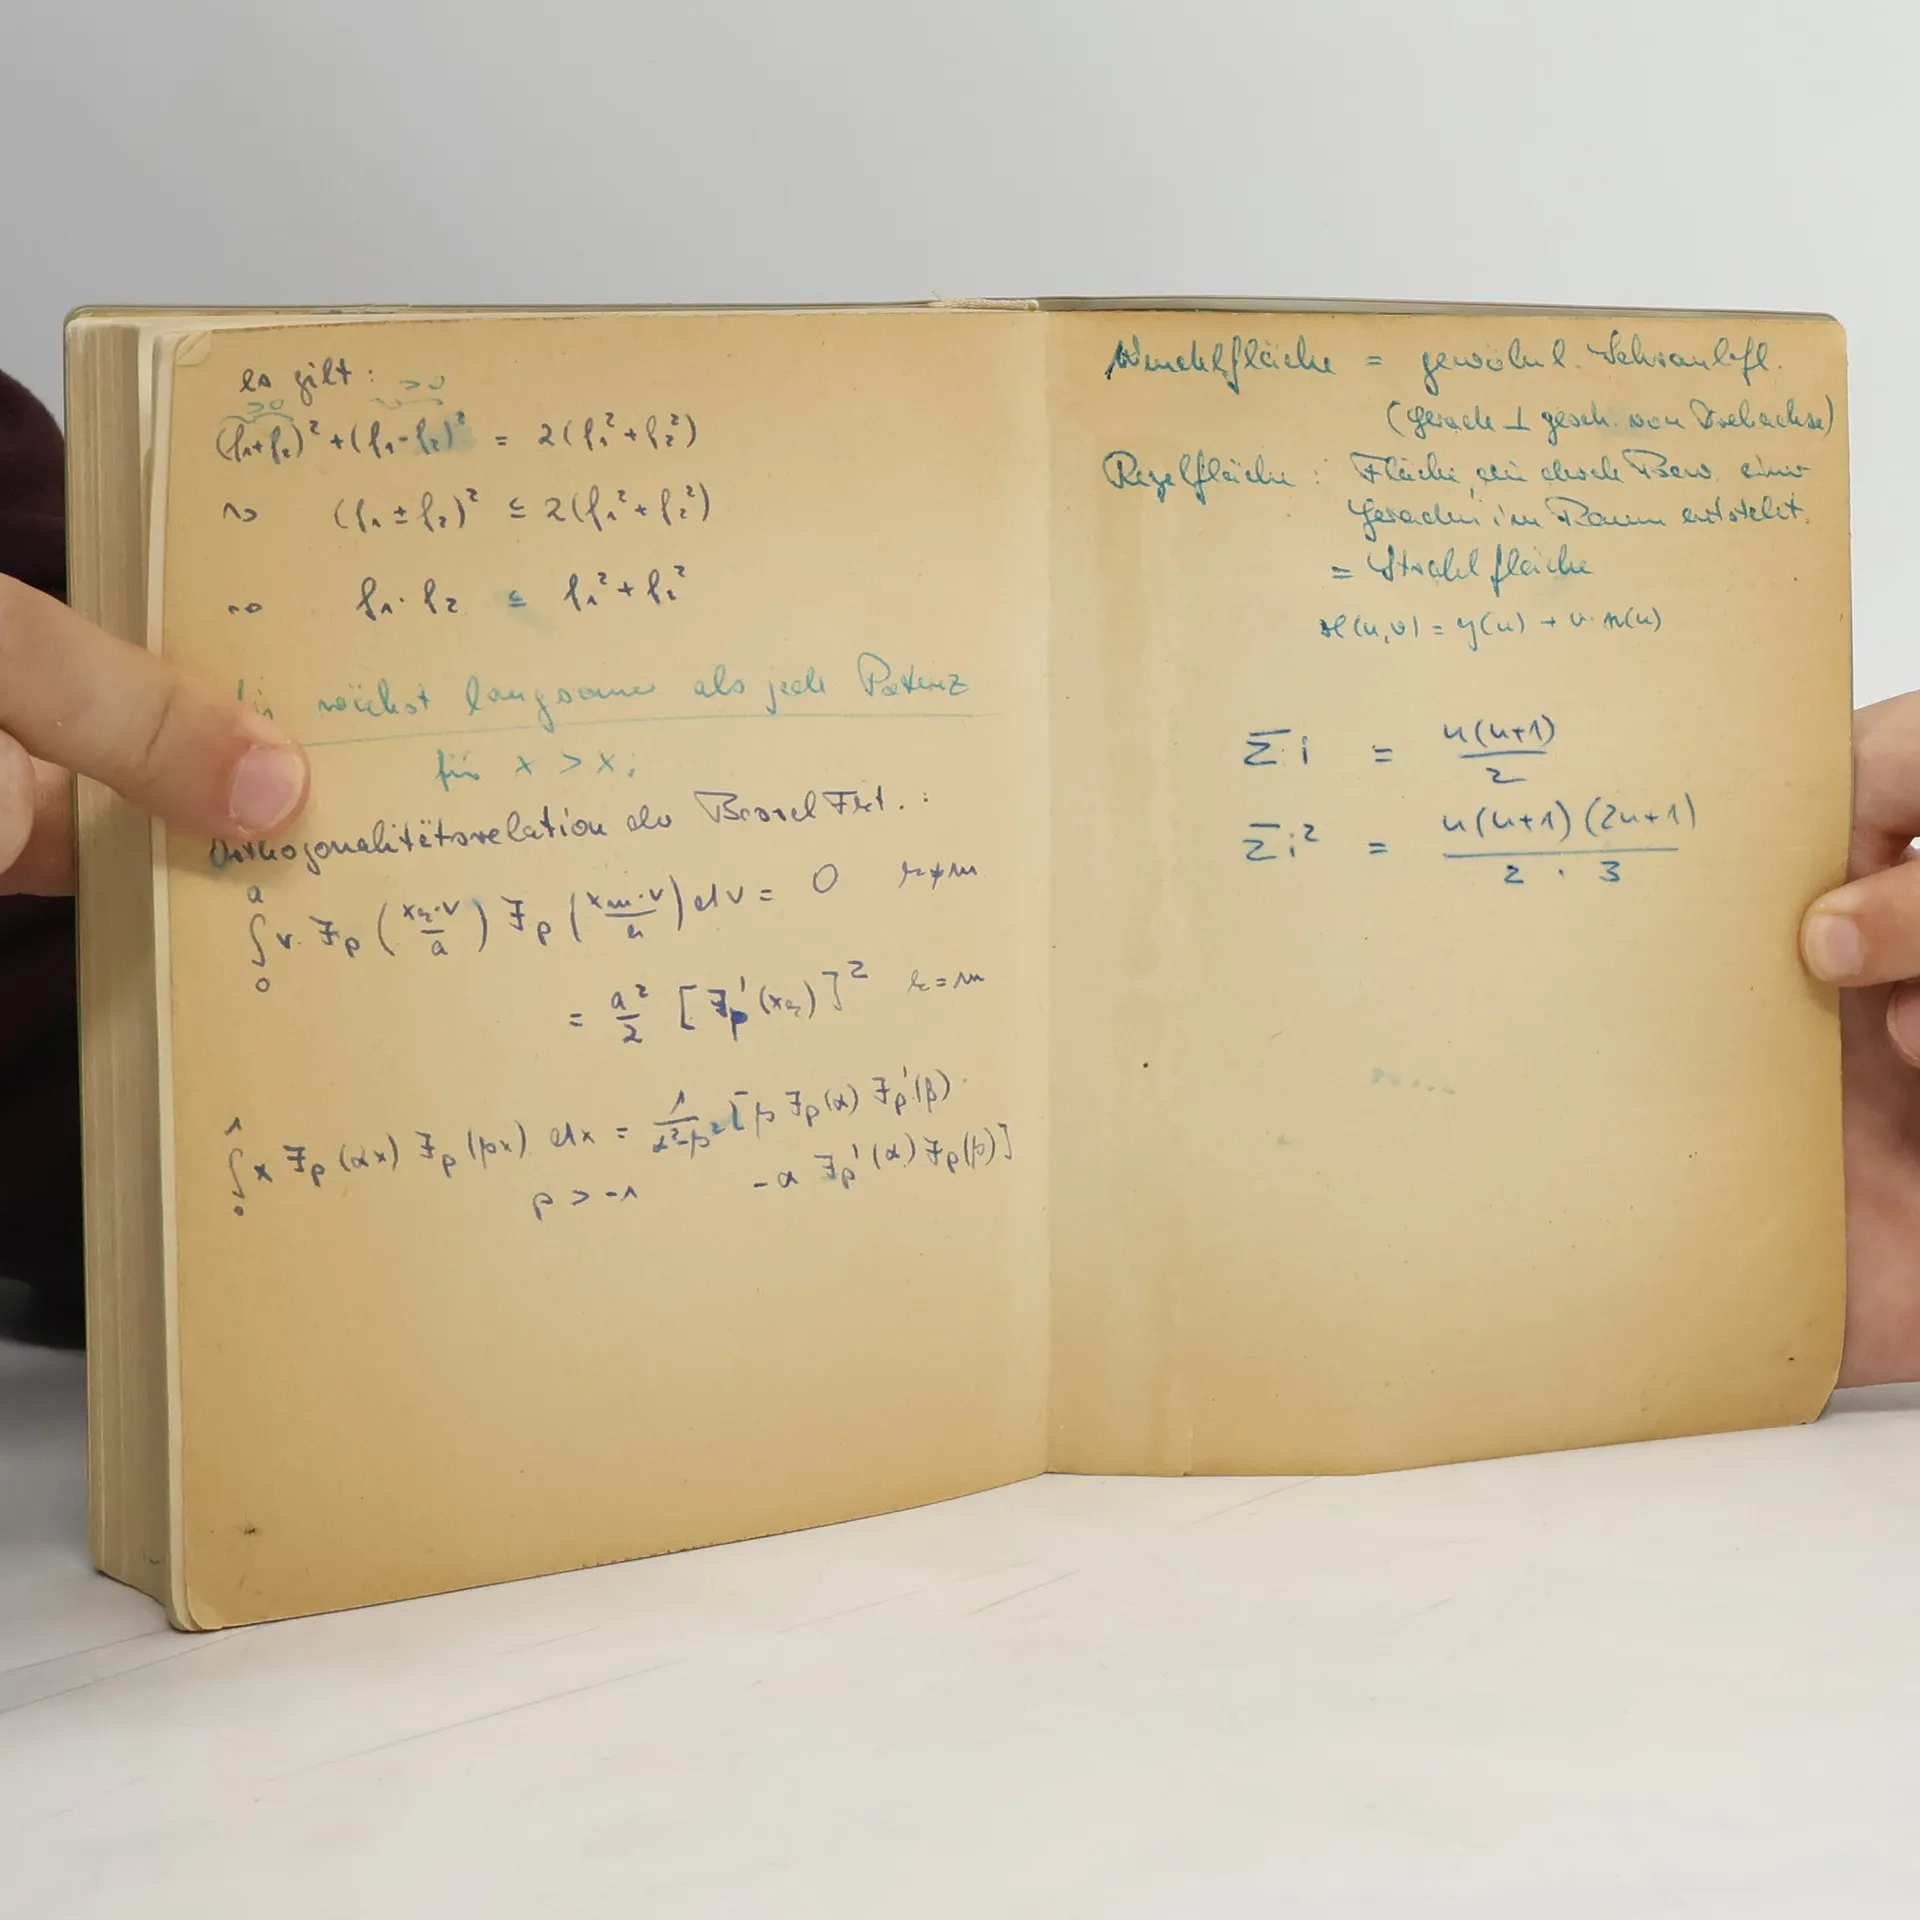 es gilt:
>0 >0
(f₁+f₂)² + (f₁-f₂)² = 2(f₁²+f₂²)
⇝ (f₁ ± f₂)² ≤ 2(f₁²+f₂²)
⇝ f₁·f₂ ≤ f₁²+f₂²
wächst langsamer als jede Potenz
für x > x₁
Orthogonalitätsrelation der Bessel Fkt.:
∫₀ᵃ r· J_p (x_k·r/a) J_p (x_m·r/a) dr = 0 k≠m
= a²/2 [J_p'(x_k)]² k=m
∫₀¹ x J_p(αx) J_p(βx) dx = 1/(α²-β²) [β J_p(α) J_p'(β)
p > -1 - α J_p'(α) J_p(β)]
Wendelfläche = gewöhnl. Schraubfl.
(Gerade ⊥ gesch. von Drehachse)
Regelfläche: Fläche, die durch Bew. einer
Geraden im Raum entsteht.
= Strahlfläche
x(u,v) = y(u) + v·z(u)
Σi = n(n+1)/2
Σi² = n(n+1)(2n+1)/2·3